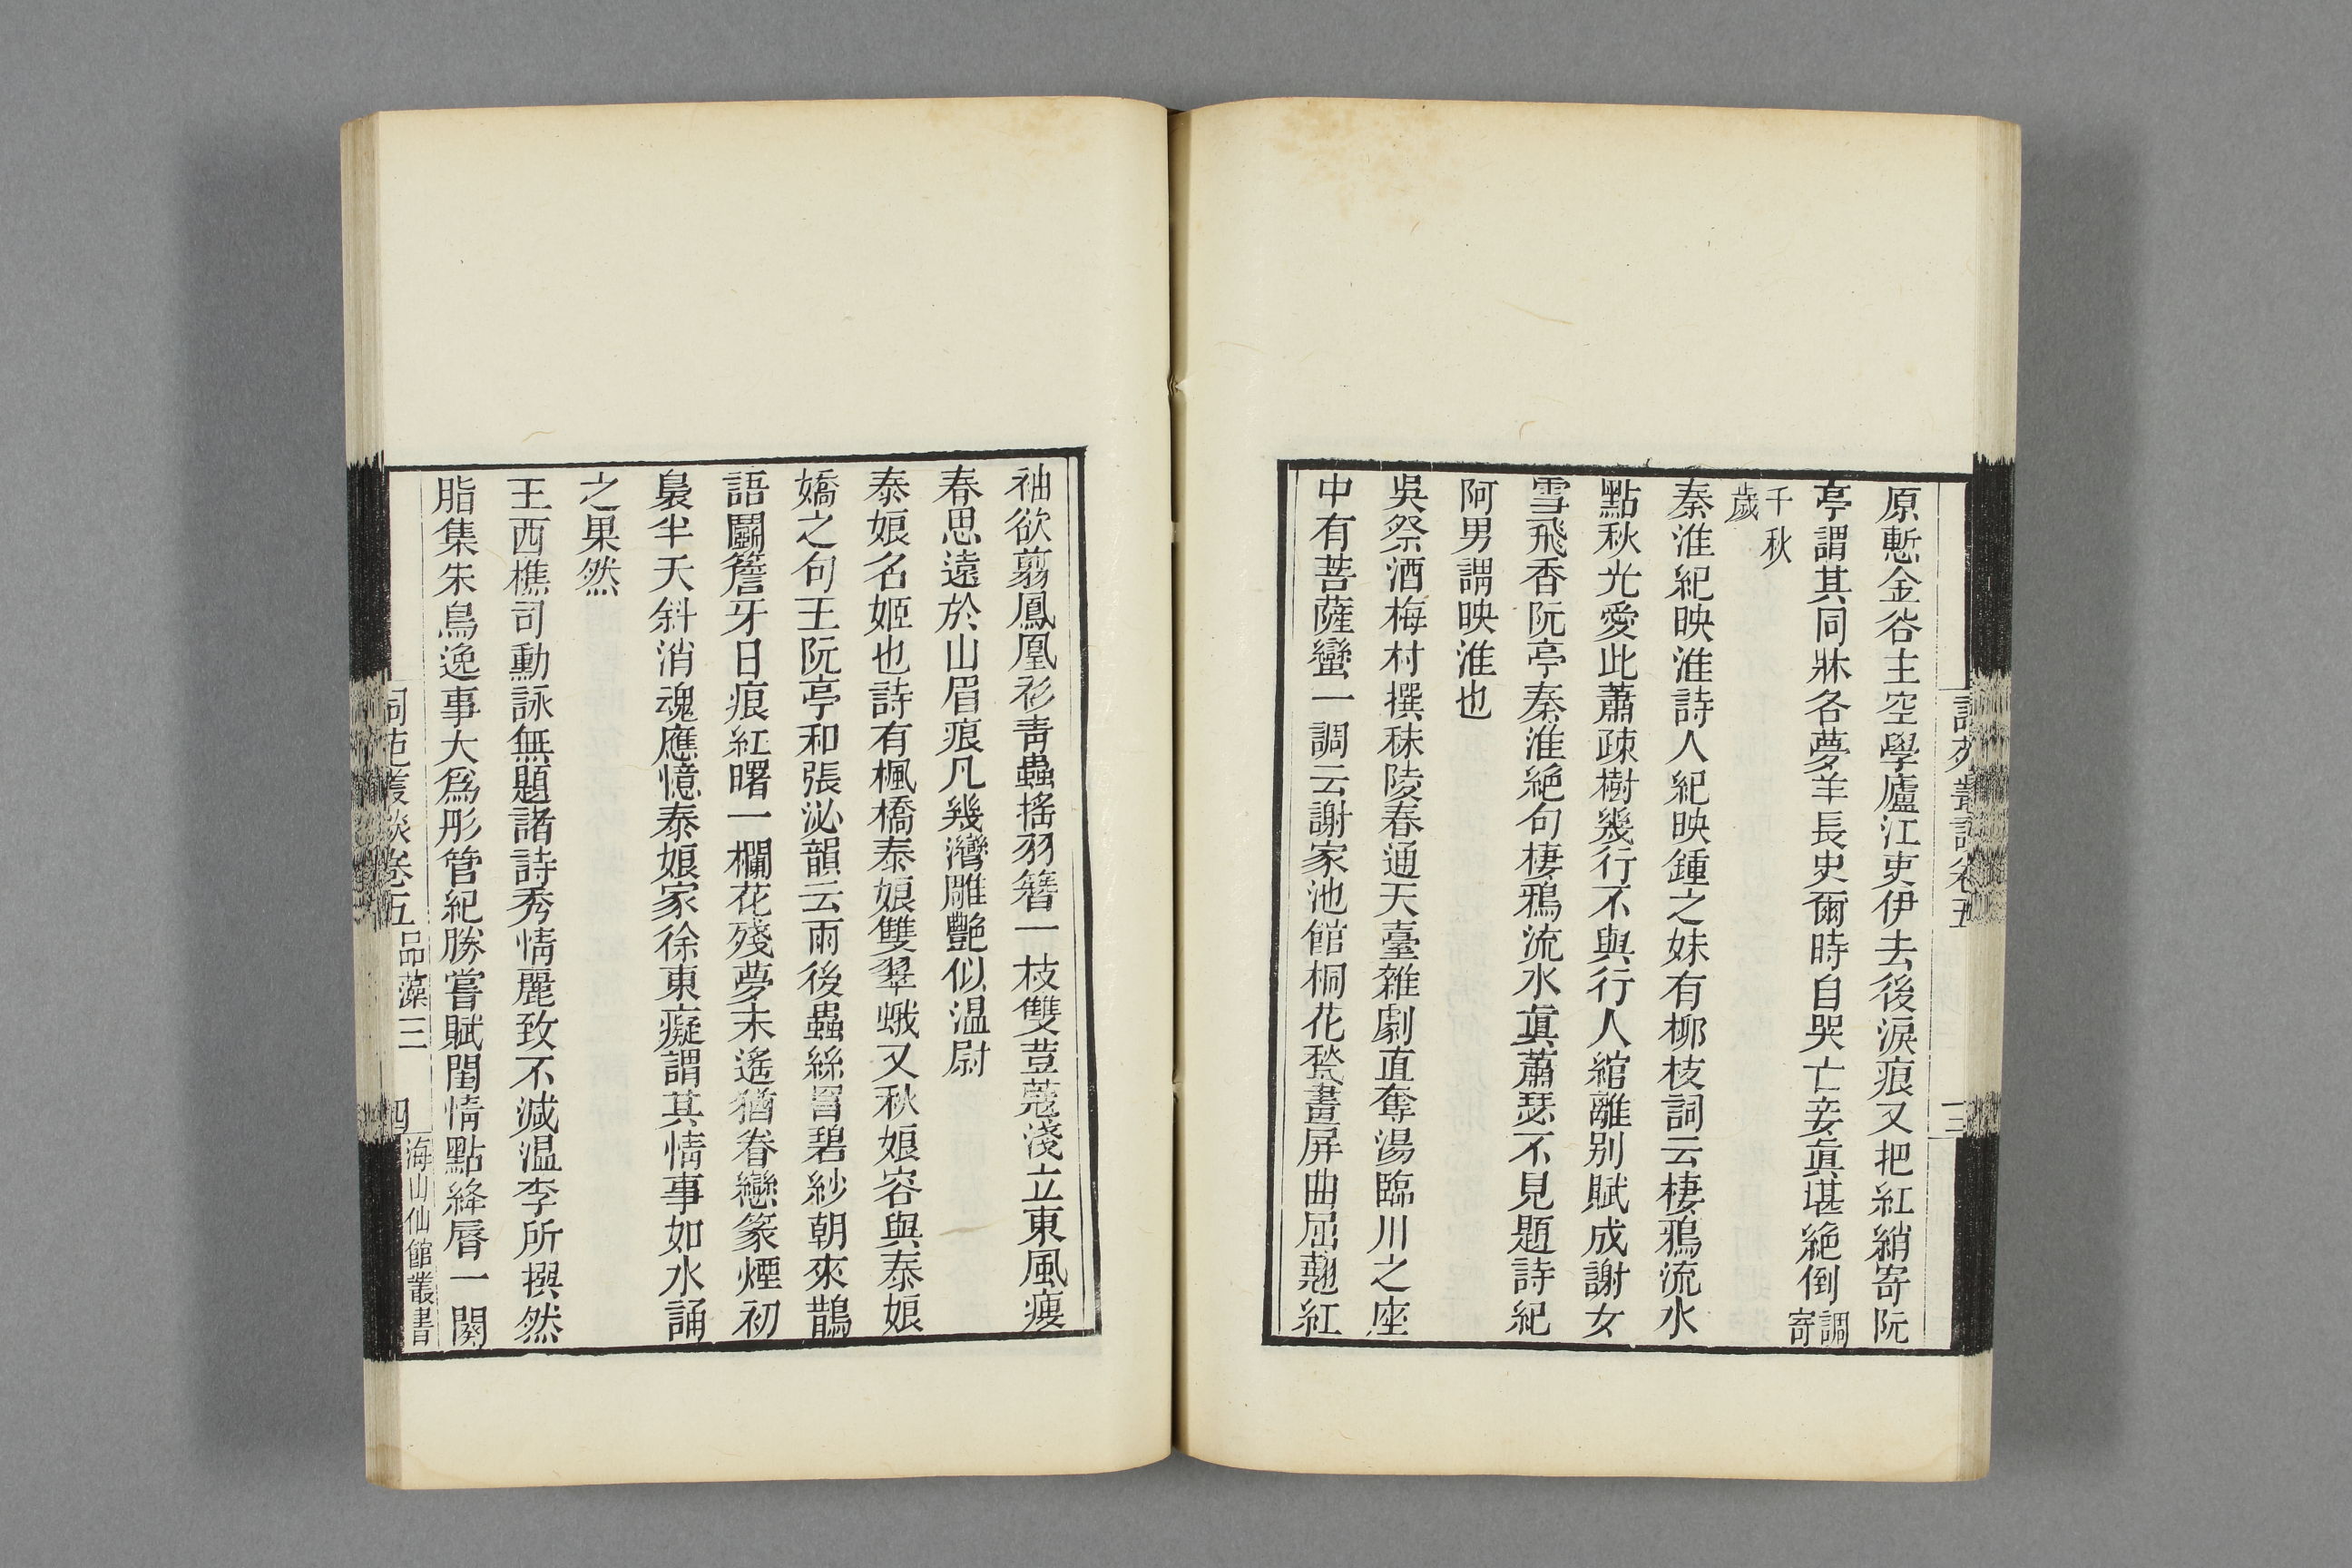 原慙金谷主空學廬江吏伊去後淚痕又把紅綃寄阮
亭謂其同牀各夢羊長史爾時自哭亡妾眞堪絶倒調寄
千秋歲
秦淮紀映淮詩人紀映鍾之妹有柳枝詞云棲鴉流水
點秋光愛此蕭疎樹幾行不與行人綰離別賦成謝女
雪飛香阮亭秦淮絶句棲鴉流水眞蕭瑟不見題詩紀
阿男謂映淮也
吳祭酒梅村撰秣陵春通天臺雜劇直奪湯臨川之座
中有菩薩蠻一調云謝家池館桐花甃畫屏曲屈翹紅
袖欲翦鳳凰衫靑蟲搖羽簪一枝雙荳蔻淺立東風瘦
春思遠於山眉痕凡幾灣雕艷似温尉
泰娘名姬也詩有楓橋泰娘雙翠蛾又秋娘容與泰娘
嬌之句王阮亭和張泌韻云雨後蟲絲罥碧紗朝來鵲
語鬭簷牙日痕紅曙一欄花殘夢未遙猶眷戀篆煙初
裊半天斜消魂應憶泰娘家徐東癡謂其情事如水誦
之果然
王西樵司勳詠無題諸詩秀情麗致不減温李所撰然
脂集朱鳥逸事大爲彤管紀勝嘗賦閨情點絳脣一闋
詞苑叢談卷五 品藻三 四 海山仙館叢書